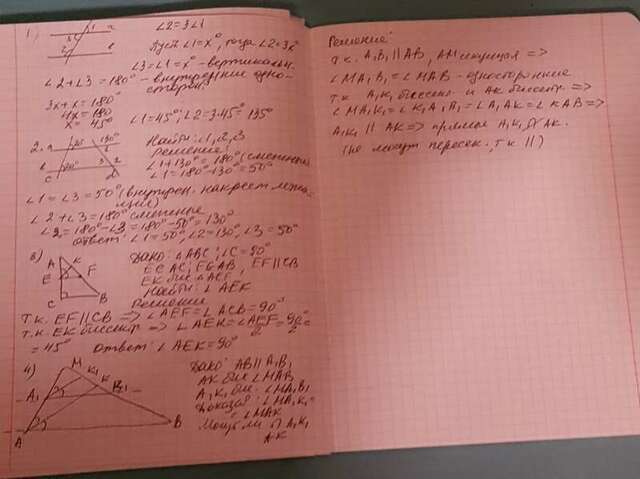 1)
∠2=3∠1
Пусть ∠1=x°, тогда ∠2=3x°
∠3=∠1=x°-вертикальн.
∠2+∠3=180°-внутренние одно-
сторон.
3x+x=180°
4x=180
x=45°
∠1=45°; ∠2=3·45=135°
2.
Найти: ∠1,2,3
Решение:
∠1+130°=180°(смежные)
∠1=180°-130°=50°
∠1=∠3=50°(внутрен. накрест лежа-
щие)
∠2+∠3=180° смежные
∠2=180°-∠3=180°-50°=130°
ответ: ∠1=50°, ∠2=130°, ∠3=50°
3)
A K
E F
C B
Дано: △ABC; ∠C=90°
E∈AC, F∈AB, EF||CB
EK бис.
Найти: ∠AEK
Решение
т.к. EF||CB => ∠AEF=∠ACB=90°
т.к. EK биссектр => ∠AEK=∠AEF/2=90°/2=
=45° ответ: ∠AEK=90°
4)
M
K₁
A₁ K B₁
A B
Дано: AB||A₁B₁
AK бис ∠MAB
A₁K₁ бис. ∠MA₁B₁
∠MA₁K₁=
∠MAK
ли ∩ A₁K₁
AK
Решение:
т.к. A₁B₁||AB, AM секущая =>
∠MA₁B₁=∠MAB-односторонние
т.к A₁K₁ биссект и AK биссектр. =>
∠MA₁K₁=∠K₁A₁B₁=∠A₁AK=∠KAB=>
A₁K₁ || AK=> прямые A₁K₁ ∩ AK.
(не могут пересек., т.к ||)